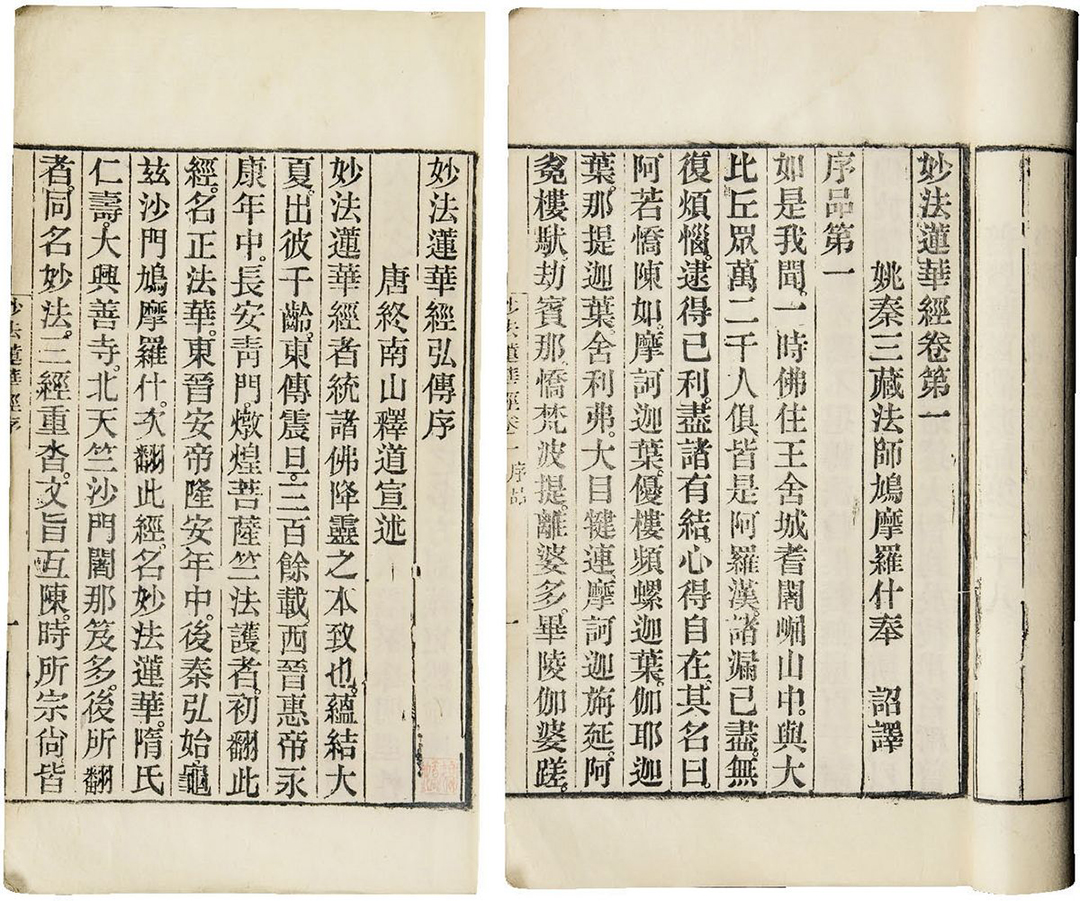 妙法蓮華經卷第一
姚秦三藏法師鳩摩羅什奉　詔譯
序品第一
如是我聞。一時佛住王舍城耆闍崛山中。與大
比丘眾萬二千人俱皆是阿羅漢。諸漏已盡。無
復煩惱。逮得己利。盡諸有結心得自在。其名曰。
阿若憍陳如。摩訶迦葉。優樓頻螺迦葉。伽耶迦
葉。那提迦葉。舍利弗。大目犍連。摩訶迦旃延。阿
㝹樓馱。劫賓那。憍梵波提。離婆多。畢陵伽婆蹉。
妙法蓮華經卷一 序品 一
妙法蓮華經弘傳序
唐終。南山釋道宣述
妙法蓮華經者統諸佛降靈之本致也。蘊結大
夏。出彼千齡。東傳震旦。三百餘載。西晉惠帝永
康年中。長安青門。燉煌菩薩竺法護者。初翻此
經。名正法華。東晉安帝隆安年中。後秦弘始龜
茲沙門鳩摩羅什。次翻此經。名妙法蓮華。隋氏
仁壽。大興善寺。北天竺沙門闍那笈多。後所翻
者。同名妙法。三經重沓。文旨互陳。時所宗尚皆
妙法蓮華經序 一